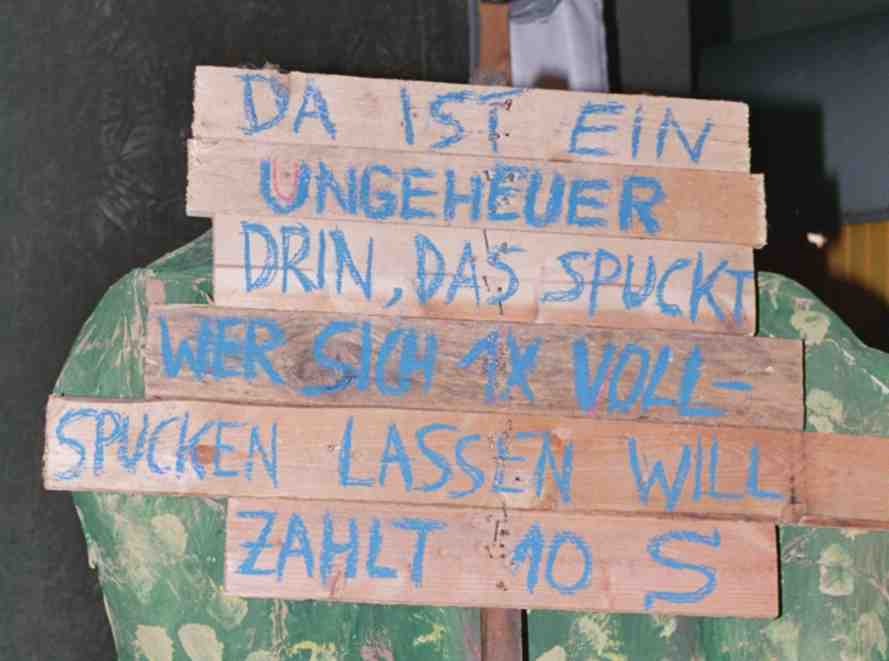 DA IST EIN
UNGEHEUER
DRIN, DAS SPUCKT
WER SICH 1X VOLL-
SPUCKEN LASSEN WILL
ZAHLT 10 S